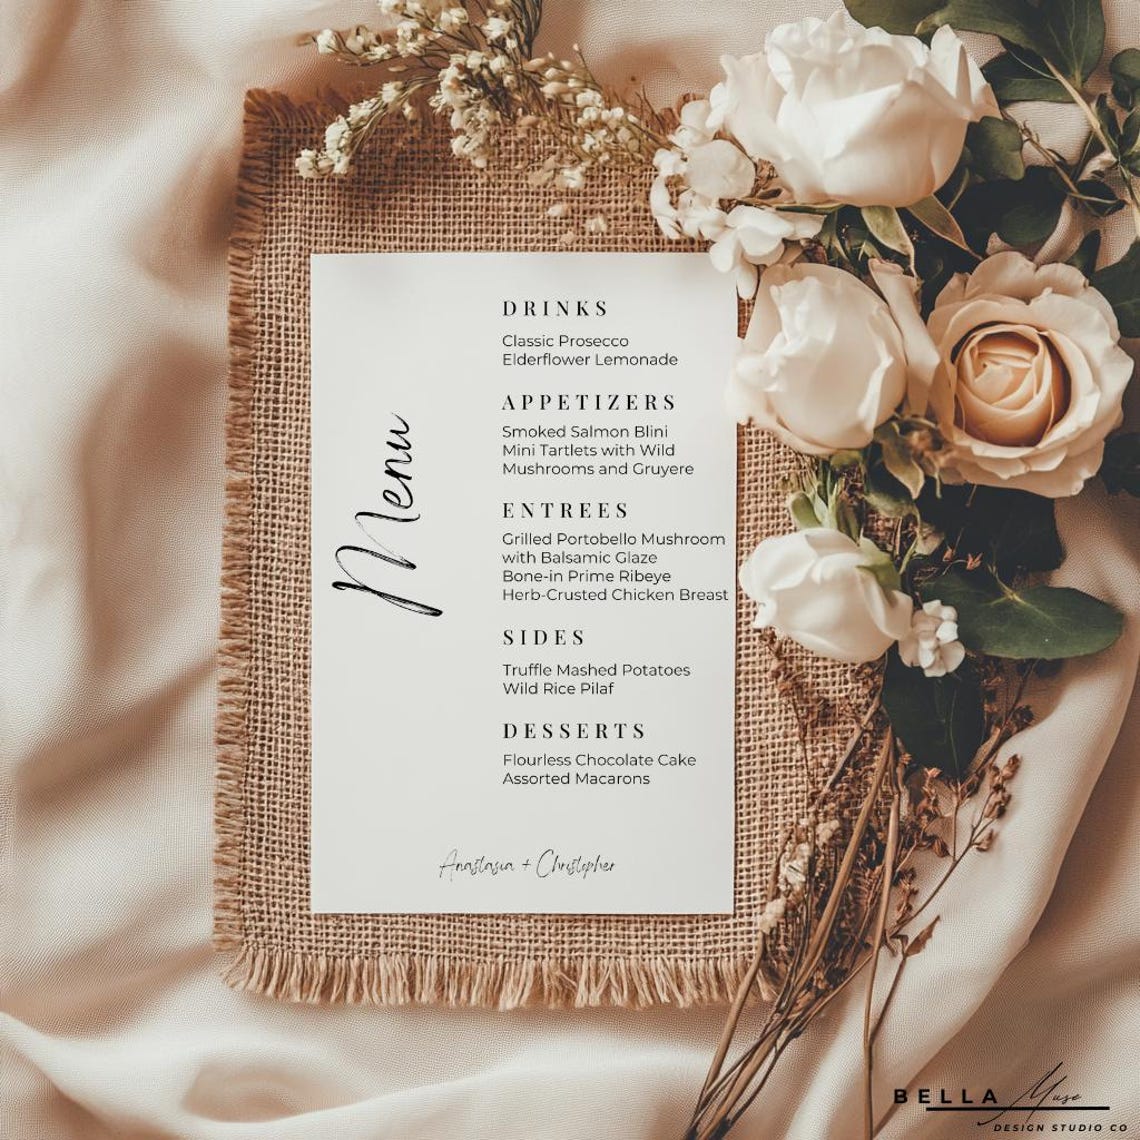 Menu
DRINKS
Classic Prosecco
Elderflower Lemonade
APPETIZERS
Smoked Salmon Blini
Mini Tartlets with Wild
Mushrooms and Gruyere
ENTREES
Grilled Portobello Mushroom
with Balsamic Glaze
Bone-in Prime Ribeye
Herb-Crusted Chicken Breast
SIDES
Truffle Mashed Potatoes
Wild Rice Pilaf
DESSERTS
Flourless Chocolate Cake
Assorted Macarons
Anastasia + Christopher
BELLA Muse
DESIGN STUDIO CO